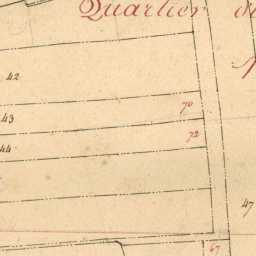 Quartier
42
70
43
72
44
47
67